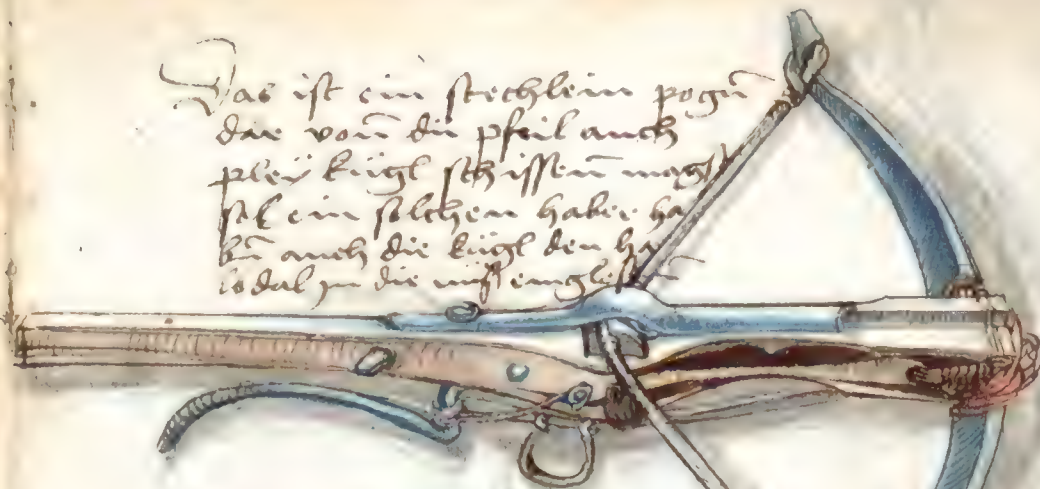 Das ist ein stechlein pogn̄
dar von̄ du pfeil auch
pley kugl schissen̄ mag
sol ein solchen haber ha
bn̄ auch die kugl den ha
in die nuß